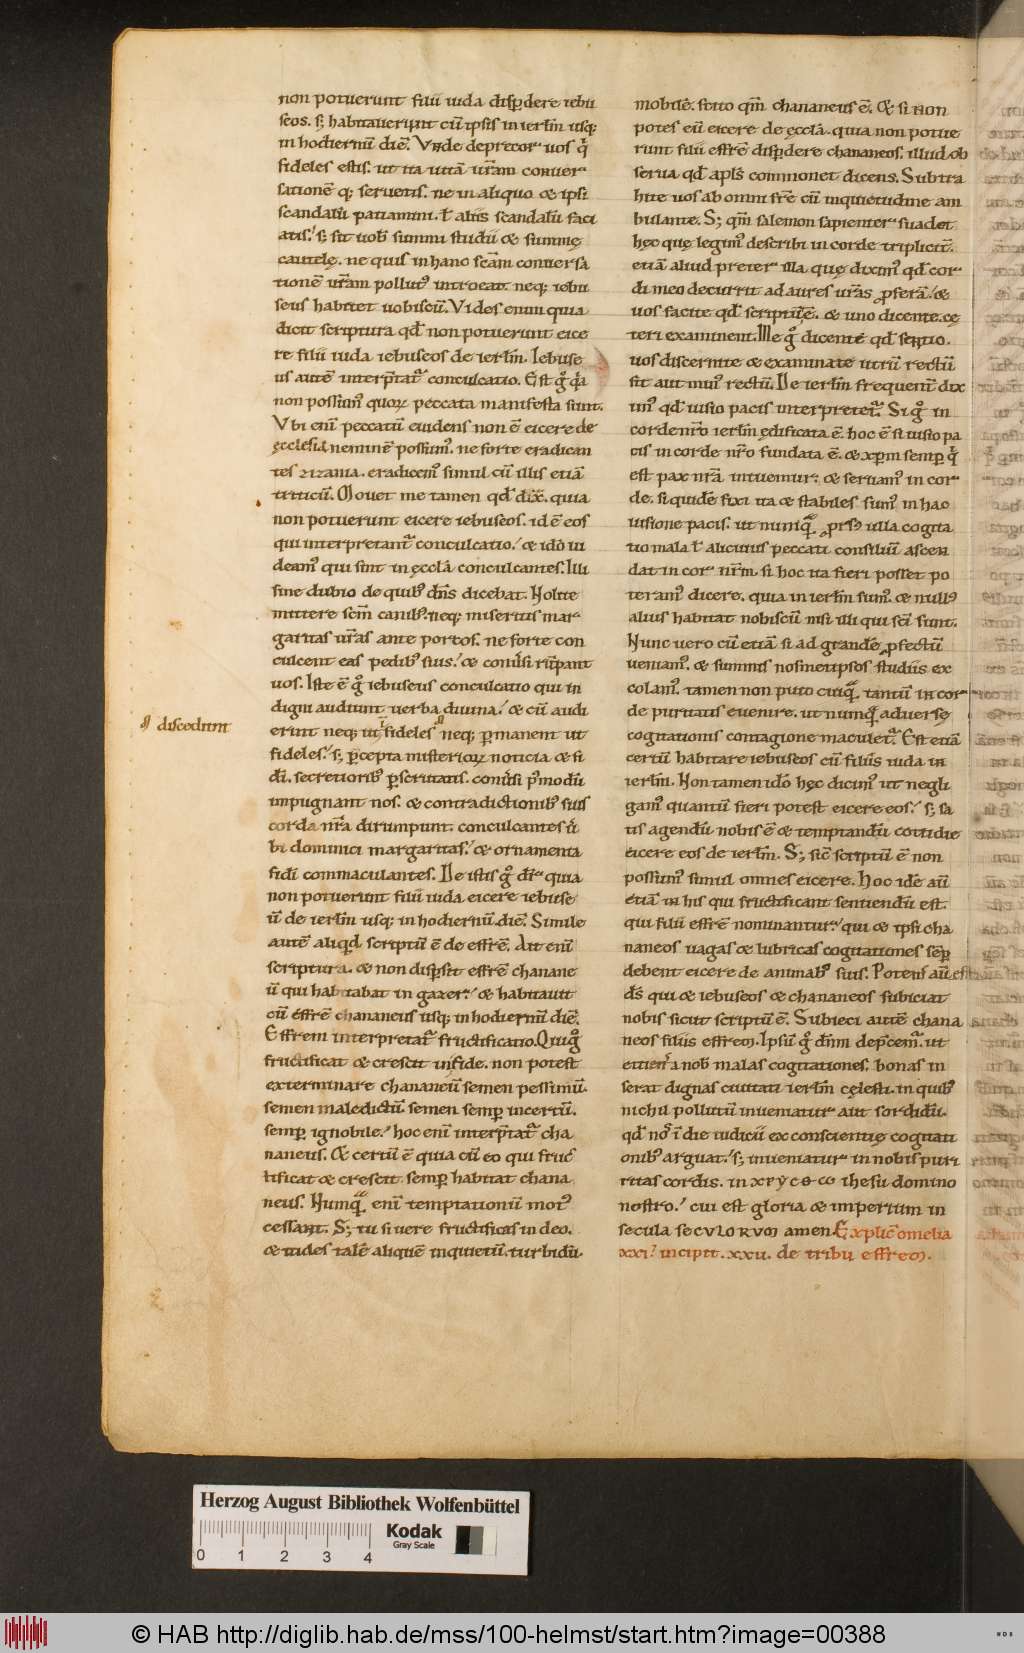 non potuerunt filii iuda disp̱dere iebu
seos. s; habitauerunt cū ipsis in ierłm usq;
in hodiernū diē. Vnde deprecor uos q̇
fideles estis. ut ita uitā ur̄am conuer
sationē q; seruetis. ne in aliquo & ipsi
scandalū patiamini. ł aliis scandalū faci
atis. s; sit uob̄ summi studii & summę
cautelę. ne quis in hanc sc̄am conuersa
tionē ur̄am pollutꝰ introeat. neq; iebu
seus habitet uobiscū. Vides enim quia
dicit scriptura qđ non potuerunt eice
re filii iuda iebuseos de ierłm. Iebuse
us autē interp̄tat᷑ conculcatio. Est gͦ q̇a
non possumꝰ quoꝝ peccata manifesta sunt.
Vbi eni peccatū euidens non ē eicere de
ęcclesia neminē possumꝰ. ne forte eradican
tes zizania. eradicemꝰ simul cū illis etiā
triticū. Mouet me tamen qđ dix̄. quia
non potuerunt eicere iebuseos. id ē eos
qui interpretant᷑ conculcatio. & ido ui
deamꝰ qui sint in ęccła conculcantes. Illi
sine dubio de quibꝰ dn̄s dicebat. Nolite
mittere scm̄ canibꝰ. neq; miseritis mar
garitas ur̄as ante porcos. ne forte con
culcent eas pedibꝰ suis. & conuersi rūpant
uos. Iste ē gͦ iebuseus conculcatio qui in
digni audiunt uerba diuina. & cū audi
discedunt
erint neq; ut fideles neq; ꝑmanent ut
fideles. s; ꝑcepta misterioꝝ noticia & fi
dei. secretioribꝰ ꝑscrutatis. conuersi p̄modū
impugnant nos. & contradictionibꝰ suis
corda nr̄a dirumpunt. conculcantes u̇
bi dominici margaritas. & ornamenta
fidei commaculantes. De istis gͦ dr̄ quia
non potuerunt filii iuda eicere iebuse
ū de ierłm usq; in hodiernū diē. Simile
autē aliqđ scriptū ē de effrē. Ait eni
scriptura. & non disꝑsit effrē chanane
ū qui habitabat in gazer. & habitauit
cū effrē chananeus usq; in hodiernū diē.
Effrem interpretat᷑ fructificatio. Quigͦ
fructificat & crescit in fide. non potest
exterminare chananeū semen pessimū.
semen maledictū. semen semꝑ incertū.
semꝑ ignobile. hoc eni interp̄tat᷑ cha
naneus. Et certū ē quia cū eo qui fruc
tificat & crescit semꝑ habitat chana
neus. Numq̄ eni temptationū motꝰ
cessant. S; tu si uere fructificas in deo.
& uides talē aliquē inquietū. turbidū.
mobilē. scito qm̄ chananeus ē. Et si non
potes eū eicere de ęccła. quia non potue
runt filii effrē disꝑdere chananeos. illud ob
serua qđ apłs commonet dicens. Subtra
hite uos ab omni fr̄e cū inquietudine am
bulante. S; qm̄ salemon sapienter suadet
hęc quę legimꝰ describi in corde tripliciter.
etiā aliud preter illa quę diximꝰ qđ cor
di meo decurrit ad aures ur̄as ꝓferā. &
uos facite qđ scriptū ē. & uno dicente. cę
teri examinent. Me gͦ dicente qđ sentio.
uos discernite & examinate utrū rectū
sit aut minꝰ rectū. De ierłm frequent̄ dix
imꝰ qđ uisio pacis interpretet᷑. Si gͦ in
corde nr̄o ierłm ędificata ē. hoc ē si uisio pa
cis in corde nr̄o fundata ē. & xp̄m semꝑ q̇
est pax nr̄a intuemur. & seruamꝰ in cor
de. si quidē fixi ita & stabiles sumꝰ in hac
uisione pacis. ut nunq̄ ꝓrsꝰ ulla cogita
tio mala ł alicuius peccati consiliū ascen
dat in cor nr̄m. si hoc ita fieri posset po
teramꝰ dicere. quia in ierłm sumꝰ. & nullꝰ
alius habitat nobiscū nisi illi qui sc̄i sunt.
Nunc uero cū etiā si ad grandē ꝓfectū
ueniamꝰ. & summis nosmetipsos studiis ex
colamꝰ. tamen non puto cuiq̄ tantū in cor
de puritatis euenire. ut numq̄ aduersę
cogitationis contagione maculet᷑. Est etiā
certū habitare iebuseos cū filiis iuda in
ierłm. Non tamen ido hęc dicimꝰ ut negli
gamꝰ quantū fieri potest eicere eos. s; sa
tis agendū nobis ē & temptandū cotidie
eicere eos de ierłm. S; sic̄ scriptū ē non
possumꝰ simul omnes eicere. Hoc idē aū
etiā in his qui fructificant sentiendū est.
qui filii effrē nominantur. qui & ipsi cha
naneos uagas & lubricas cogitationes semꝑ
debent eicere de animabꝰ suis. Potens aū est
ds̄ qui & iebuseos & chananeos subiciat
nobis sicut scriptū ē. Subieci autē chana
neos filiis effrem. Ipsū gͦ dn̄m dep̄cem᷑. ut
euertat a nob̄ malas cogitationes. bonas in
serat dignas ciuitati ierłm cęlesti. in quibꝰ
nichil pollutū inueniatur aut sordidū.
qđ nos in die iudicii ex conscientię cogitati
onibꝰ arguat. s; inueniatur in nobis puri
ritas cordis. in xpyc&ω ihesu domino
nostro. cui est gloria & imperium in
secula seculorum amen. Explic̄ omelia
xxi. incipit. xxii. de tribu effrem.
Herzog August Bibliothek Wolfenbüttel
Kodak
Gray Scale
0 1 2 3 4
© HAB http://diglib.hab.de/mss/100-helmst/start.htm?image=00388